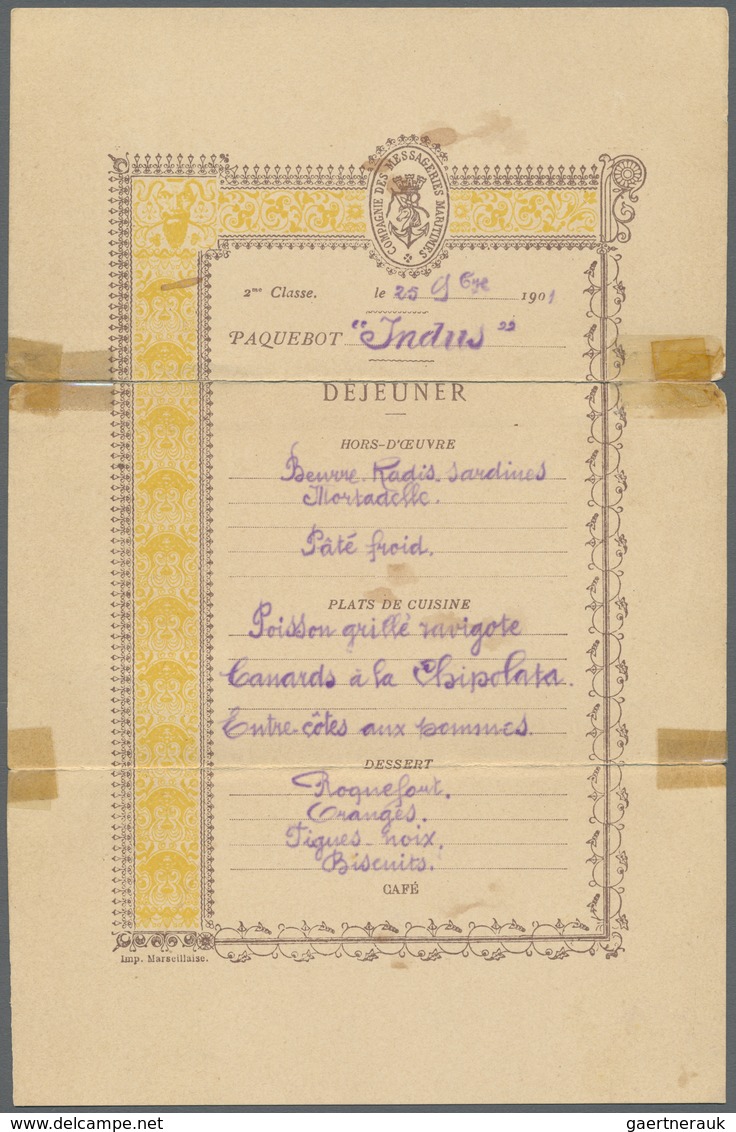 COMPAGNIE DES MESSAGERIES MARITIMES
2me Classe. le 25 9bre 1901
PAQUEBOT "Indus"
DÉJEUNER
HORS-D'ŒUVRE
Beurre. Radis. Sardines
Mortadelle.
Pâté froid.
PLATS DE CUISINE
Poisson grillé ravigote
Canards à la Chipolata.
Entre-côtes aux pommes.
DESSERT
Roquefort.
Oranges.
Figues-noix.
Biscuits.
CAFÉ
Imp. Marseillaise.
www.delcampe.net
gaertnerauk